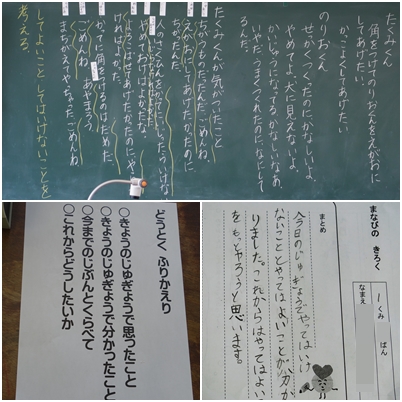 たくみくん
角をつけてのりおくんをえがおに
してあげたい。
かっこよくしてあげたい
のりおくん
せっかくつくったのに、かなしいよ。
やめてよ。犬に見えないよ。
かいじゅうになってる。かなしいなあ。
いやだ。うまくつくれたのに、なにして
るんだ。
たくみくんが気がついたこと
ちがうものだったんだ。ごめんね。
えがおにしてあげたかったのに
ちがったんだ。
人のさくひんを
やめておけばよかったな。
よろこばせてあげたかったのにな
ければよかった。
かってに角をつけるのはだめだ。
ごめんね あやまろう
まちがえてやっちゃった。ごめんね
してよいこと してはいけないことを
考える。
どうとく ふりかえり
○きょうのじゅぎょうで思ったこと
○きょうのじゅぎょうで分かったこと
○今までのじぶんとくらべて
○これからどうしたいか
まなびの きろく
1くみ ばん
なまえ
まとめ
今日のじゅぎょうでやってはいけ
ないこととやってはよいことが分か
りました。これからはやってはよいこと
をもっとやろうと思います。